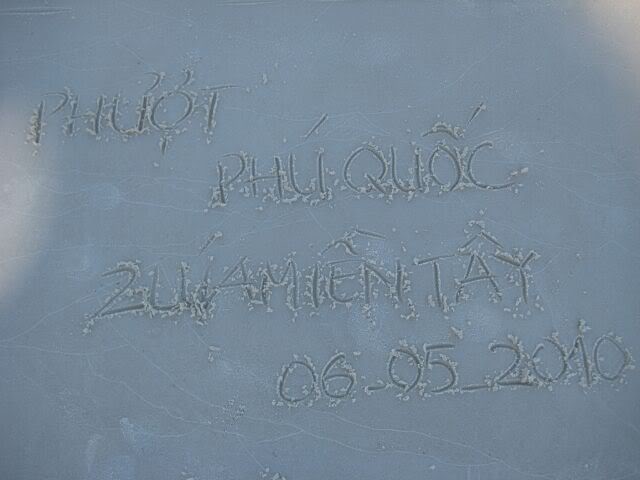 PHƯỢT
PHÚ QUỐC
2 ỨA MIỀN TÂY
06_05_2010